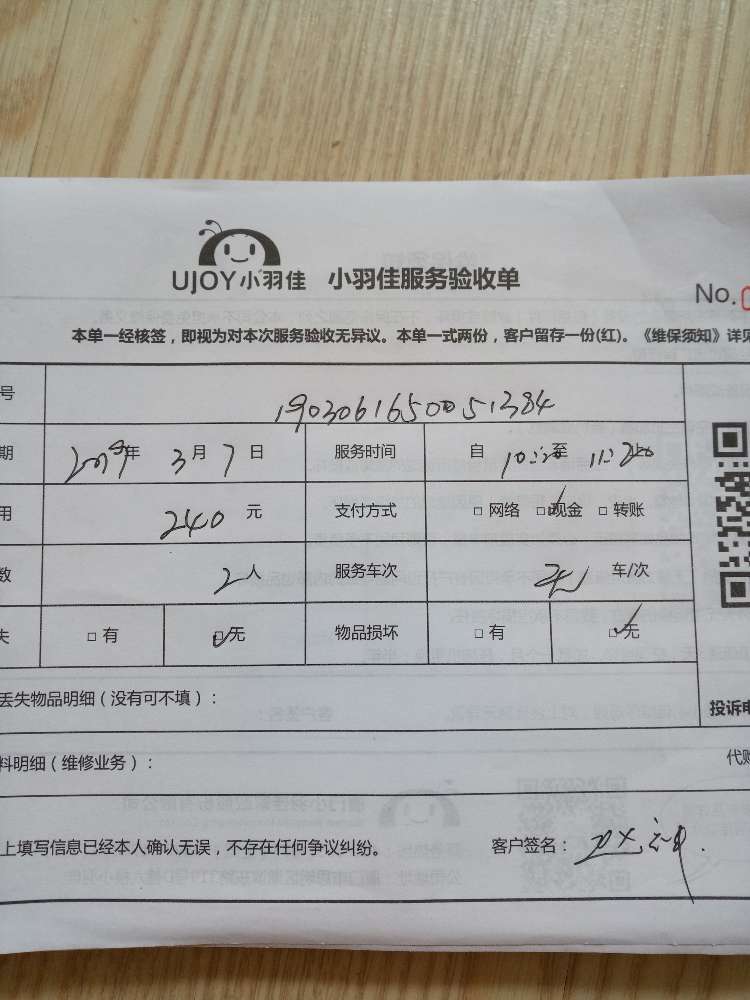 UJOY小羽佳 小羽佳服务验收单
No.
本单一经核签，即视为对本次服务验收无异议。本单一式两份，客户留存一份(红)。《维保须知》详见
号 190306165005 1384
期 2019年 3月 7日 服务时间 自 10:20至 11:20
用 240 元 支付方式 □ 网络 □现金 □ 转账
数 2人 服务车次 无 车/次
失 □ 有 □无 物品损坏 □ 有 □无
丢失物品明细（没有可不填）： 投诉电
料明细（维修业务）： 代购
上填写信息已经本人确认无误，不存在任何争议纠纷。 客户签名：